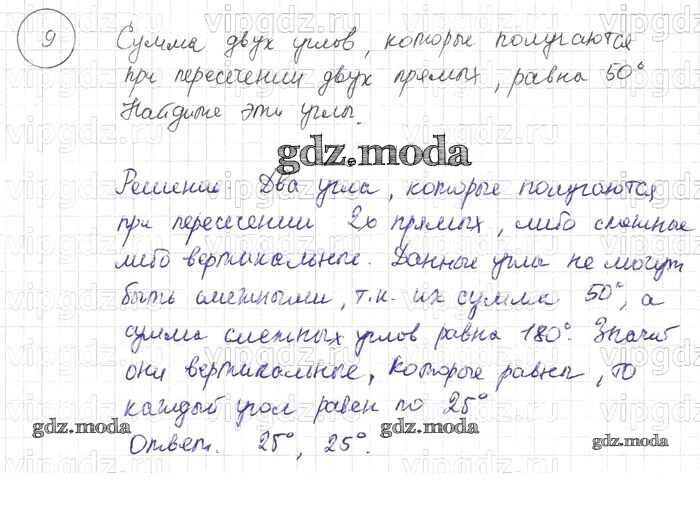 9 Сумма двух углов, которые получаются
при пересечении двух прямых, равна 50°
Найдите эти углы.
gdz.moda
Решение. Два угла, которые получаются
при пересечении 2х прямых, либо смежные
либо вертикальные. Данные углы не могут
быть смежными, т.к. их сумма 50°, а
сумма смежных углов равна 180°. Значит
они вертикальные, которые равны, то
каждый угол равен по 25°
gdz.moda
Ответ. 25°, 25°.
gdz.moda
gdz.moda
vipgdz.ru